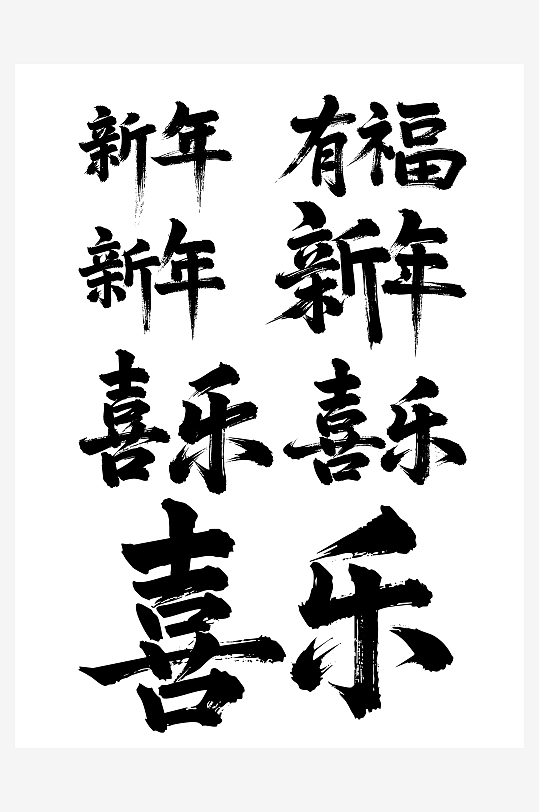 新年 有福
新年 新年
喜乐 喜乐
喜乐